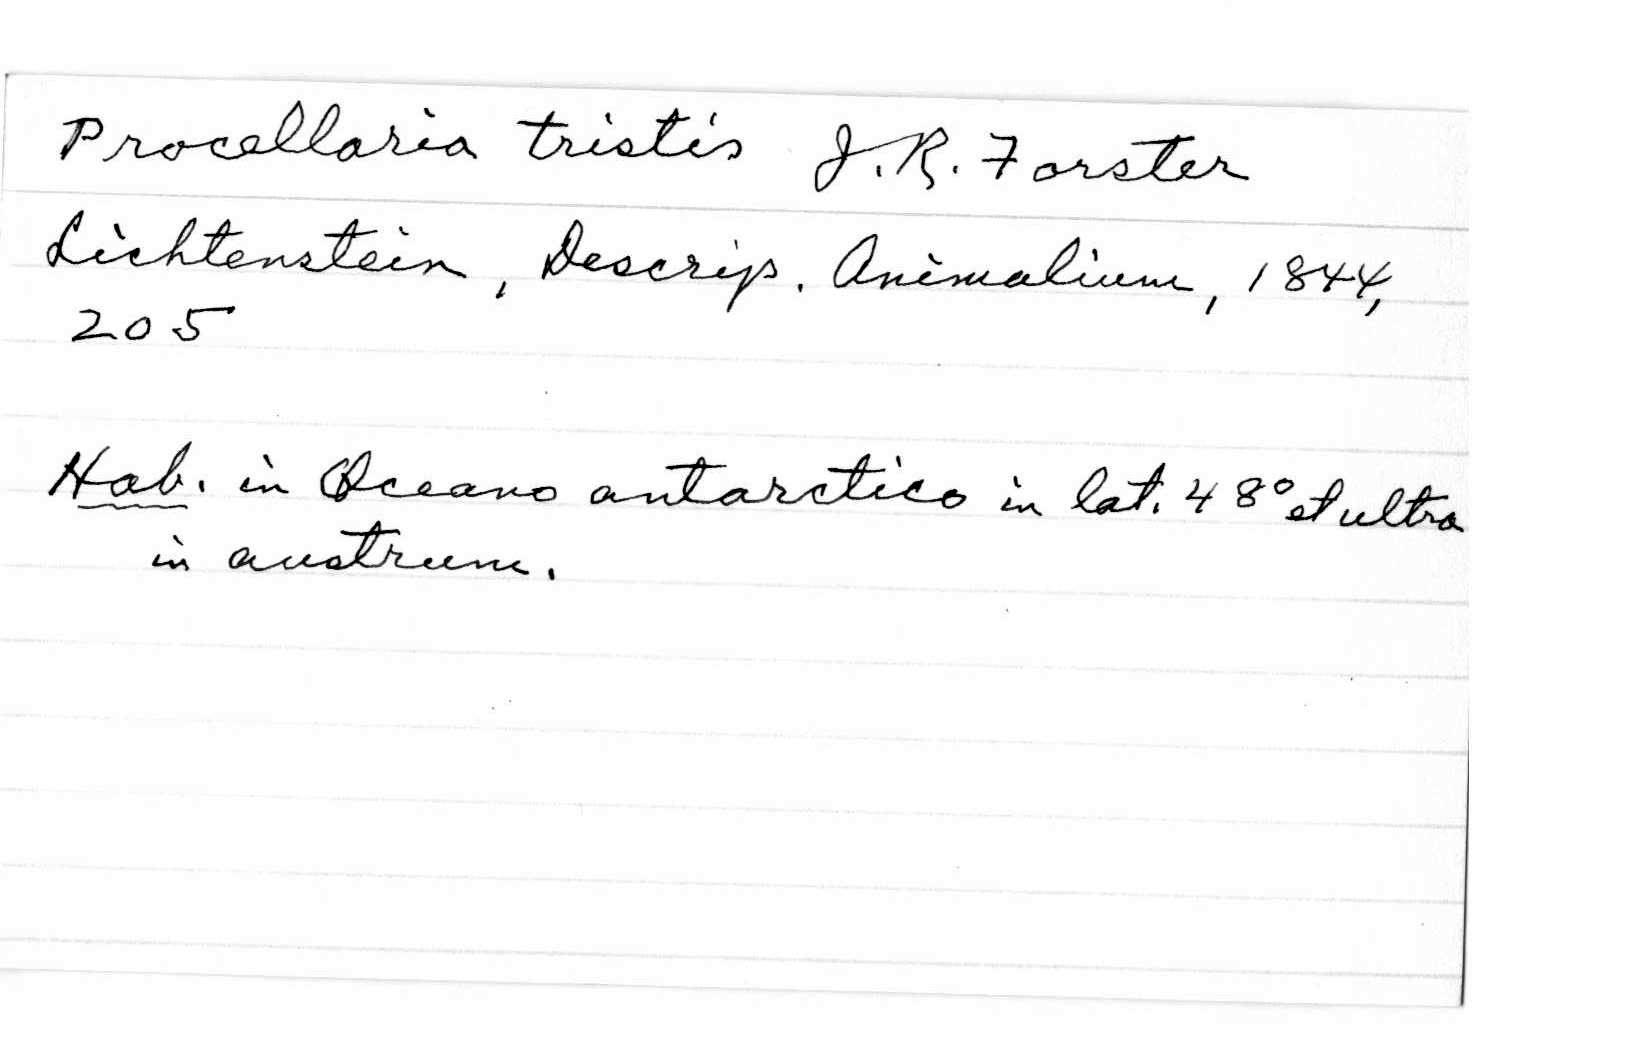 Procellaria tristis J.R. Forster
Lichtenstein, Descrip. Animalium, 1844,
205
Hab. in Oceano antarctico in lat. 48° et ultra
in austrum.